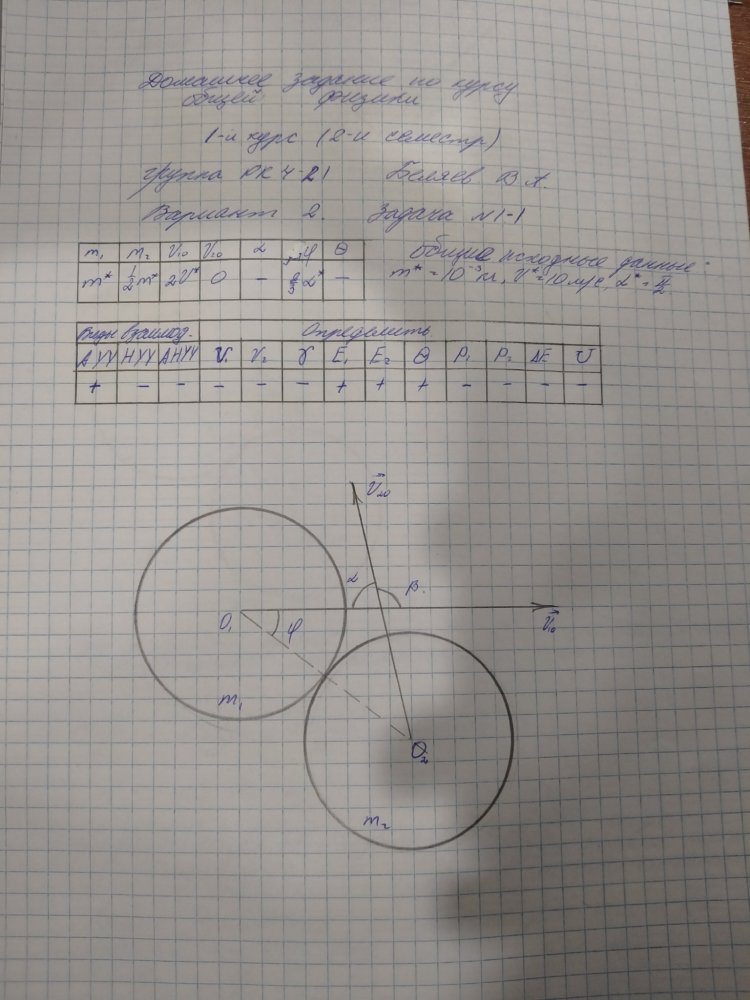 Домашнее задание по курсу
общей физики
1-й курс (2-й семестр)
группа РК 4-21 Беляев В.А.
Вариант 2. Задача №1-1
m₁ m₂ V₁₀ V₂₀ α φ θ
m* ½m* 2V* 0 – α* –
Общие исходные данные:
m* = 10⁻³ , V* = 10 м/с, α* = π/2
Виды взаимод. Определить
АУУ НУУ АНУУ V₁ V₂ γ E₁ E₂ θ P₁ P₂ ΔE U
+ – – – – – + + + – – – –
V⃗₂₀
α β.
O₁ φ V⃗₁₀
m₁
O₂
m₂